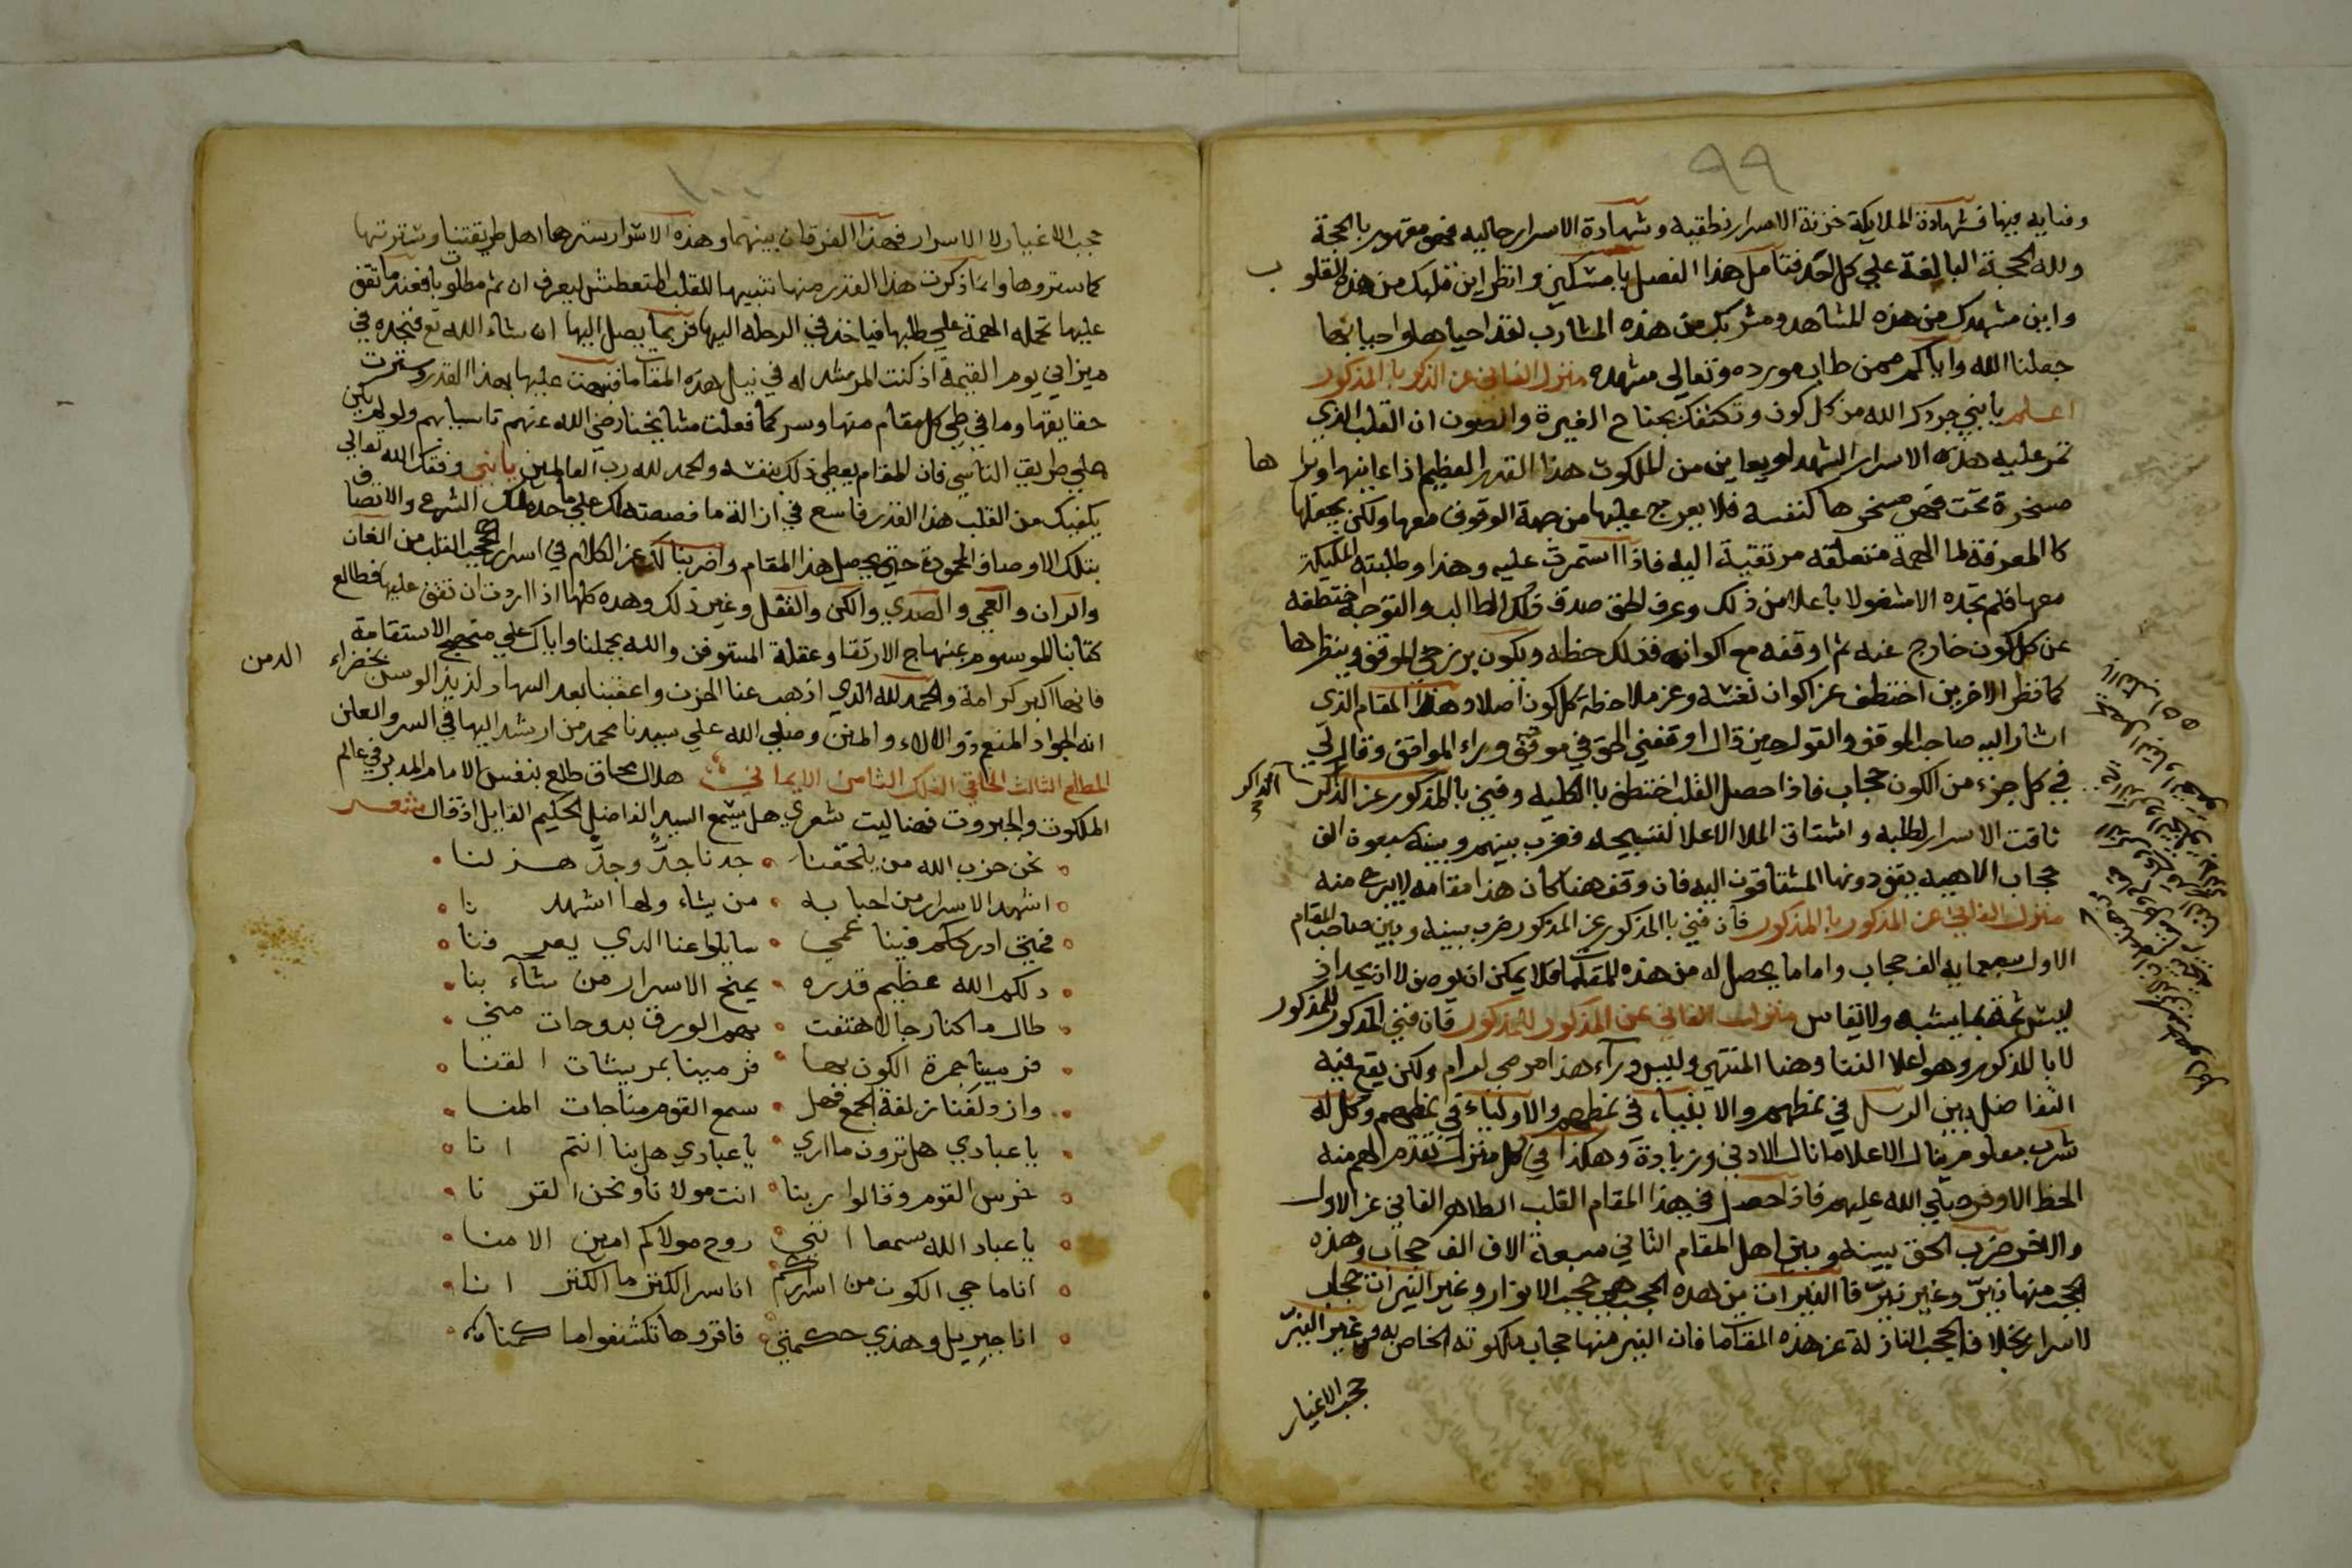 ٩٩
وفنايه فيها فشهادة الملايكة خزنة الاسرار نطقيه وشهادة الاسرار حاليه فهو مقهور بالحجة
ولله الحجة البالغة علي كل احد فتامل هذا الفصل يا مسكين وانظر اين قلبك من هذه القلوب
واين مشهدك من هذه المشاهد ومشربك من هذه المشارب لقد احياها واحيا بها
جعلنا الله واياكم ممن طاب مورده وتعالي مشهده منزل الفاني عن الذكر بالمذكور
اعلم يا بني جردك الله من كل كون وكنفك بجناح الغيرة والصون ان القلب الذي
تمر عليه هذه الاسرار الشهد لو يعاين من الملكوت هذا القدر العظيم اذا عاينها وراها
مسخرة تحت قهر مسخرها كنفسه فلا يعرج عليها من جهة الوقوف معها ولكن يجعلها
كالمعرفة لما الهمة متعلقه مرتقية اليه فاذا استمرت عليه وهذا وطلبته المليكة
معها فلم تجده الا مشغولا باعلا من ذلك وعرف الحق صدق ذلك الطالب والتوجه اختطفه
عن كل كون خارج عنه ثم اوقفه مع اكوانه فذلك حظه ويكون برزخي الموقف وينظرها
كما نظر الاخر من اختطف عن اكوان نفسه وعن ملاحظة كل كون اصلا وهذا المقام الذي
اشار اليه صاحب الموقف والقول حين قال اوقفني الحق في موقف وراء المواقف وقال لي
في كل جزء من الكون حجاب فاذا حصل القلب اختطف بالكلية وفني بالمذكور عن الذكر الذاكر
تاقت الاسرار لطلبه واشتاق الملا الاعلا لتسبيحه فضرب بينهم وبينه سبعون الف
حجاب الاهيه يقف دونها المشتاقون اليه فان وقف هنا كان هذا مقامه لا يبرح منه
منزل الفاني عن المذكور بالمذكور فان فني بالمذكور عن المذكور ضرب بينه وبين صاحب المقام
الاول سبعمايه الف حجاب واما ما يحصل له من هذه المقامات فلا يمكن ان يوصف لا ان يحد اذ
ليس ثمة بما يشبه ولا يقاس منزل الفاني عن المذكور للمذكور فان فني المذكور للمذكور
لا بالمذكور وهو اعلا الفنا وهنا المنتهي وليس وراء هذا مرمي لرام ولكن يقع فيه
التفاضل بين الرسل في نمطهم والانبياء في نمطهم والاولياء في نمطهم وكل له
شرب معلوم ينال الاعلا ما نال الادني وزيادة وهكذا في كل منزل تقدم الهم منه
الحظ الاوفر صلي الله عليهم فاذا حصل في هذا المقام القلب الطاهر الفاني عن الاول
والاخر ضرب الحق بينه وبين اهل المقام الثاني سبعة الاف الف حجاب وهذه
الحجب منها نير وغير نير فالنيرات من هذه الحجب هي حجب الانوار وغير النيرات حجاب
لاسرار بخلاف الحجب النازلة عن هذه المقامات فان النير منها حجاب ملكوته الخاص به وغير النير
حجب الاغيار
١٠٠
حجب الاغيار لا الاسرار فهذا الفرقان بينهما وهذه الاسرار سترها اهل طريقتنا وسترتها
كما ستروها وانما ذكرت هذا القدر منها تنبيها للقلب المتعطش ليعرف ان ثم مطلوبا فعندما تقف
عليها تحمله الهمة علي طلبها فياخذ في الرحله اليها فربما يصل اليها ان شاء الله تع فنجده في
ميزاني يوم القيمة اذ كنت المرشد له في نيل هذه المقامات فنبهت عليها بهذا القدر وسترت
حقايقها وما في طي كل مقام منها وسر كما فعلت مشايخنا رضي الله عنهم تاسيا بهم ولو لم يكن
علي طريق التاسي فان المقام يعطي ذلك بنفسه والحمد لله رب العالمين يا بني وفقك الله تعالي
يكفيك من القلب هذا القدر فاسع في ازالة ما فصصته لك علي ما حده لك الشرع والاتصاف
بتلك الاوصاف المحمودة حتي يحصل هذا المقام واضربنا لك عن الكلام في اسرار الحجب القلب من الغان
والران والعمي والصدي والكن والقفل وغير ذلك وهذه كلها اذا اردت ان تقف عليها فطالع
كتابنا الموسوم بمنهاج الارتقا وعقلة المستوفز والله يجعلنا واياك علي منهج الاستقامة
فانها اكبر كرامة والحمد لله الذي اذهب عنا الحزن واعقبنا بعد السهاد لذيذ الوسن بخضراء الدمن
انه الجواد المنعم ذو الالاء والمنن وصلي الله علي سيدنا محمد من ارشد اليها في السر والعلن
المطلع الثالث الخلقي الفلك الثامن الايماني هلال محاق طلع بنفس الامام المدبر في عالم
الملكوت والجبروت فهنا ليت شعري هل يسمع السيد الفاضل الحكيم القايل اذ قال شعر
نحن حزب الله من يلحقنا جدنا جد وجد هزلنا
اشهد الاسرار من احبابه من يشاء ولها اشهدنا
فمتي ادرككم فينا عمي سايلوا عنا الذي يعرفنا
ذلكم الله عظيم قدره يمنح الاسرار من شاء بنا
طال ما كنا رجالا هتفت بهم الورق بدوحات مني
فرمينا جمرة الكون بها فرمينا بمريشات القنا
وازدلفنا زلفة الجمع فهل سمع القوم مناجات المنا
يا عبادي هل ترون ما اري يا عبادي هل بنا انتم انا
خرس القوم وقالوا ربنا انت مولانا ونحن القرنا
يا عباد الله سمعا انني روح مولاكم امين الامنا
انا ماحي الكون من اسراركم انا سر الكنز ما الكنز انا
انا جبريل وهذي حكمتي فاقروها تكشفوا ما كمنا